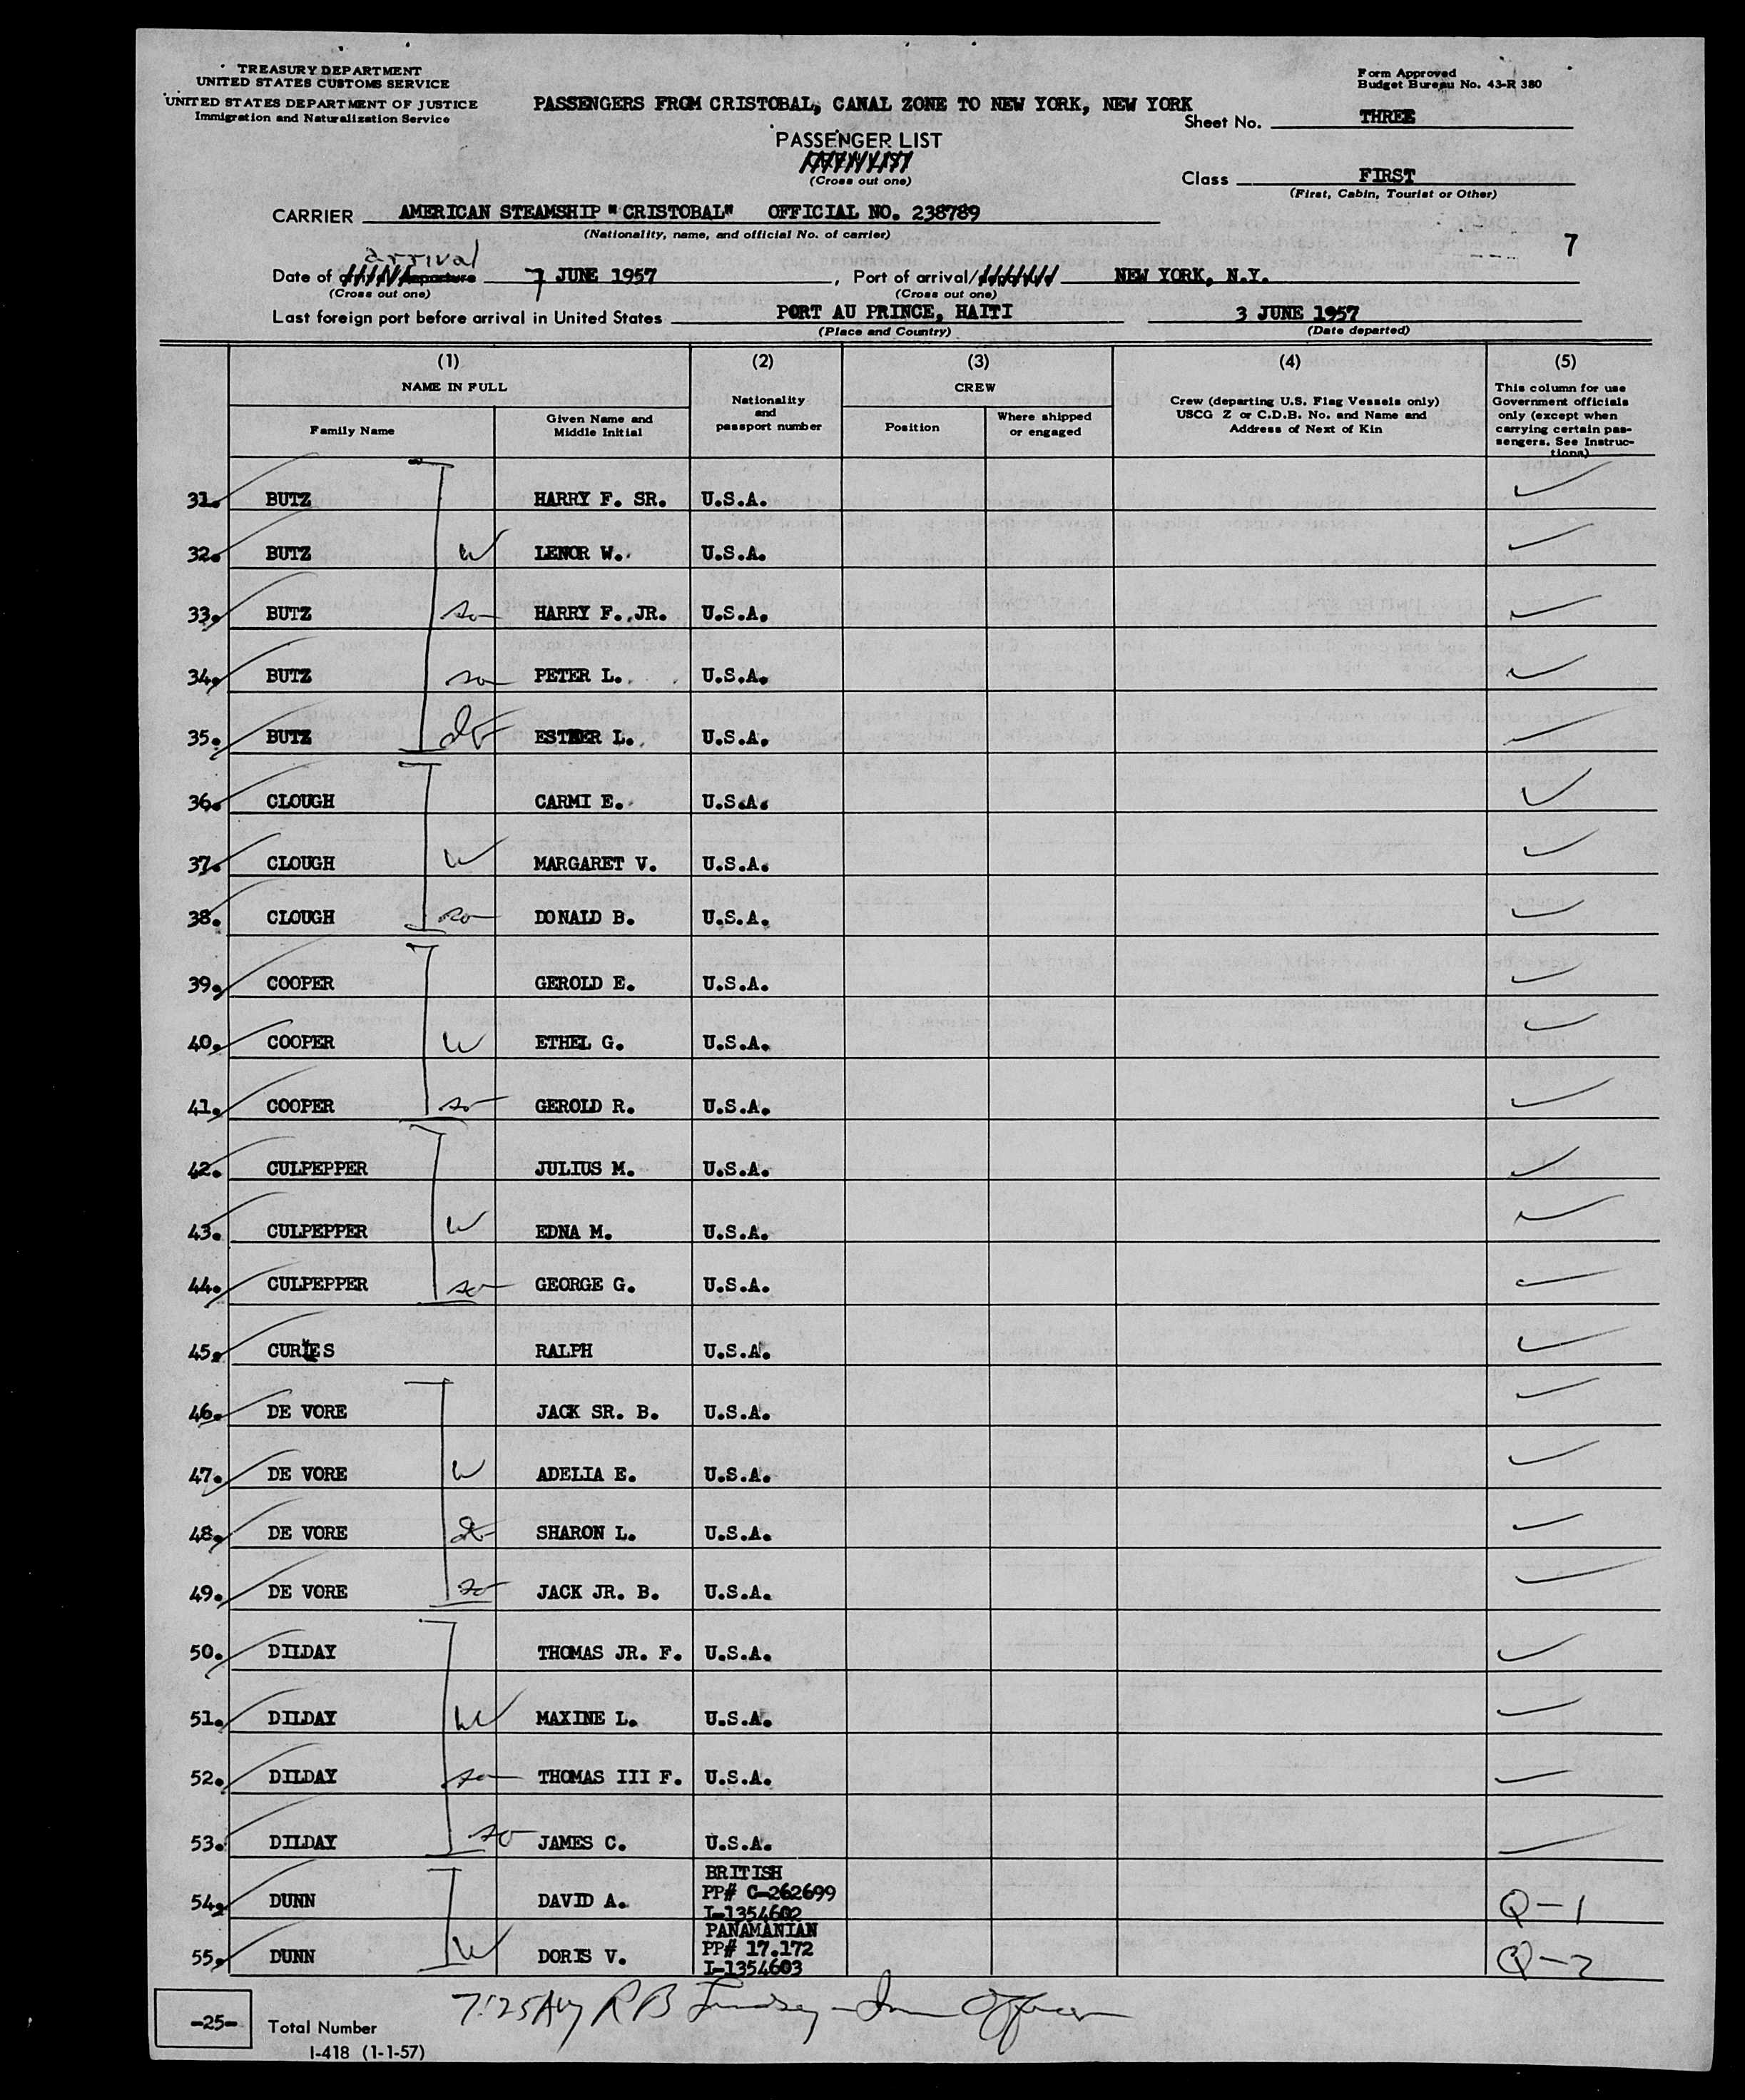 TREASURY DEPARTMENT
UNITED STATES CUSTOMS SERVICE
UNITED STATES DEPARTMENT OF JUSTICE
Immigration and Naturalization Service
Form Approved
Budget Bureau No. 43-R 380
PASSENGERS FROM CRISTOBAL, CANAL ZONE TO NEW YORK, NEW YORK
Sheet No. THREE
PASSENGER LIST
(Cross out one)
Class FIRST
(First, Cabin, Tourist or Other)
CARRIER AMERICAN STEAMSHIP "CRISTOBAL" OFFICIAL NO. 238789
(Nationality, name, and official No. of carrier)
7
arrival
Date of departure 7 JUNE 1957, Port of arrival/departure NEW YORK, N.Y.
(Cross out one) (Cross out one)
Last foreign port before arrival in United States PORT AU PRINCE, HAITI 3 JUNE 1957
(Place and Country) (Date departed)
(1) (2) (3) (4) (5)
NAME IN FULL
Family Name
Given Name and
Middle Initial
Nationality
and
passport number
CREW
Position
Where shipped
or engaged
Crew (departing U.S. Flag Vessels only)
USCG Z or C.D.B. No. and Name and
Address of Next of Kin
This column for use
Government officials
only (except when
carrying certain pas-
sengers. See Instruc-
tions)
31. BUTZ HARRY F. SR. U.S.A.
32. BUTZ W LENOR W. U.S.A.
33. BUTZ so HARRY F. JR. U.S.A.
34. BUTZ so PETER L. U.S.A.
35. BUTZ da ESTHER L. U.S.A.
36. CLOUGH CARMI E. U.S.A.
37. CLOUGH W MARGARET V. U.S.A.
38. CLOUGH so DONALD B. U.S.A.
39. COOPER GEROLD E. U.S.A.
40. COOPER W ETHEL G. U.S.A.
41. COOPER so GEROLD R. U.S.A.
42. CULPEPPER JULIUS M. U.S.A.
43. CULPEPPER W EDNA M. U.S.A.
44. CULPEPPER so GEORGE G. U.S.A.
45. RALPH U.S.A.
46. DE VORE JACK SR. B. U.S.A.
47. DE VORE W ADELIA E. U.S.A.
48. DE VORE da SHARON L. U.S.A.
49. DE VORE so JACK JR. B. U.S.A.
50. DILDAY THOMAS JR. F. U.S.A.
51. DILDAY W MAXINE L. U.S.A.
52. DILDAY so THOMAS III F. U.S.A.
53. DILDAY so JAMES C. U.S.A.
BRITISH
54. DUNN DAVID A. PP# C-262699 Q-1
I-1354602
PANAMANIAN
55. DUNN W DORIS V. PP# 17.172 Q-2
I-1354603
7:25 AM R B Lindsey - Imm Officer
-25- Total Number
I-418 (1-1-57)